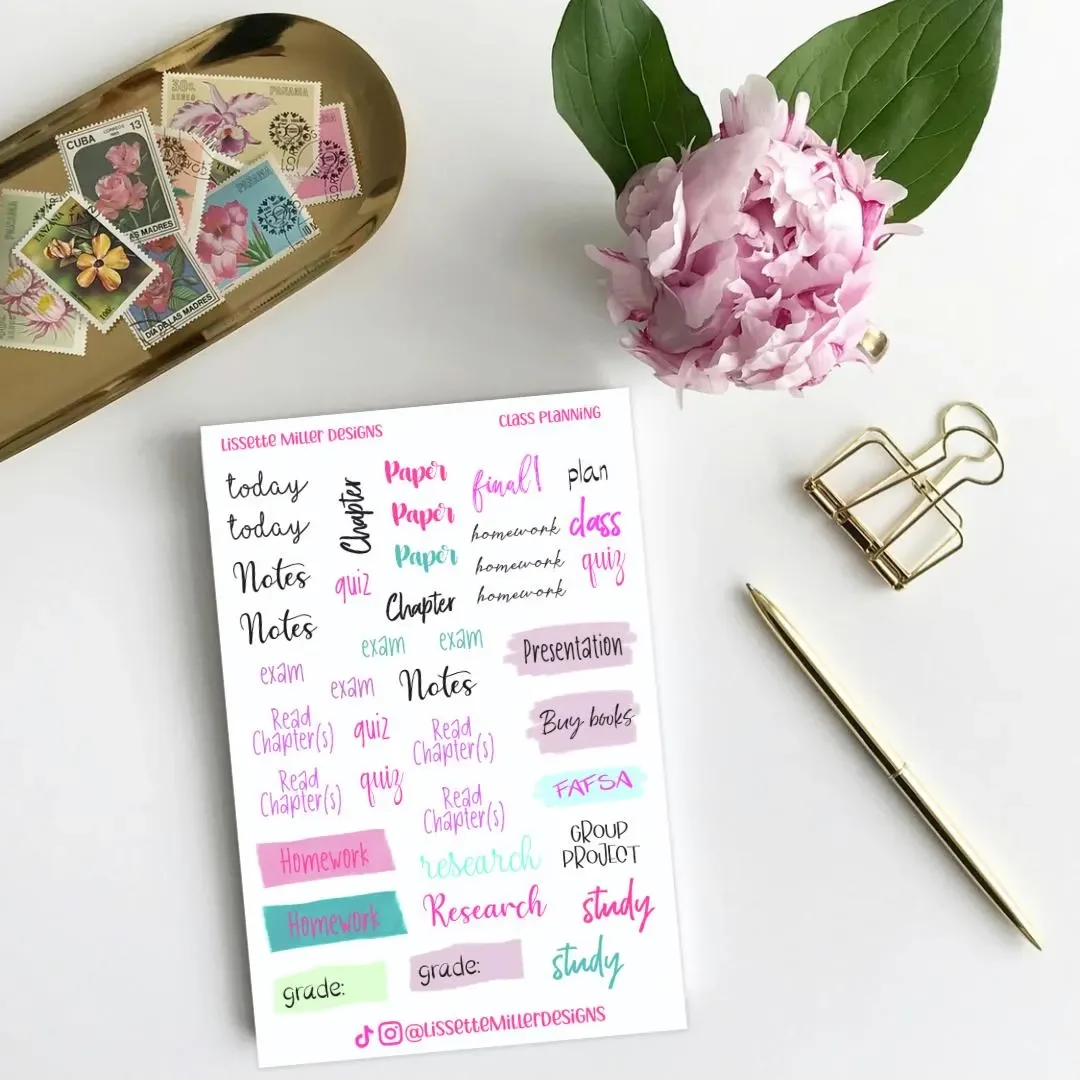 30c PANAMA
AEREO
CUBA
CORREOS
13
AS MADRES
PANAMA
PANAMA
TANZANIA
DIA DE LAS MADRES
Lissette Miller Designs
Class Planning
today
today
Chapter
Paper
Paper
Paper
final!
plan
homework
homework
homework
class
quiz
Notes
Notes
quiz
Chapter
exam
exam
exam
exam
Notes
Presentation
Read
Chapter(s)
quiz
Read
Chapter(s)
Buy books
Read
Chapter(s)
quiz
Read
Chapter(s)
FAFSA
Homework
research
GROUP
PROJECT
Homework
Research
study
grade:
grade:
study
@LissetteMillerDesigns